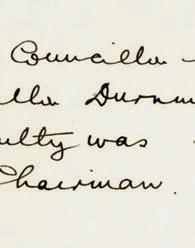 Councilla
lla Durnin
ulty was
Chairman.